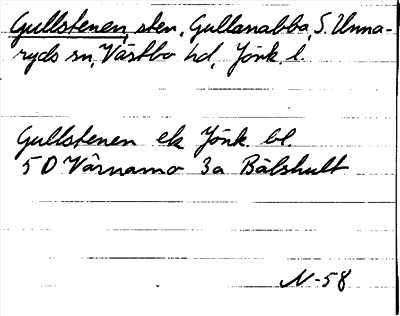 Gullstenen, sten, Gullanabba, S. Unna-
ryds sn, Västbo hd, Jönk. l.
Gullstenen ek Jönk. bl.
5D Värnamo 3a Bälshult
N-58